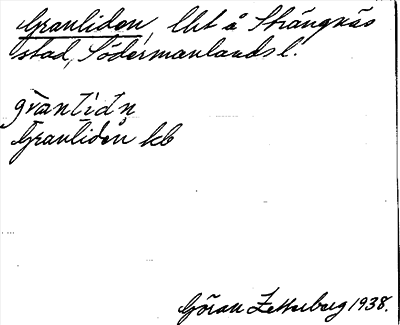 Granliden, lht å Strängnäs
stad, Södermanlands l.
granlidn
Granliden kb
Göran Zetterberg 1938.